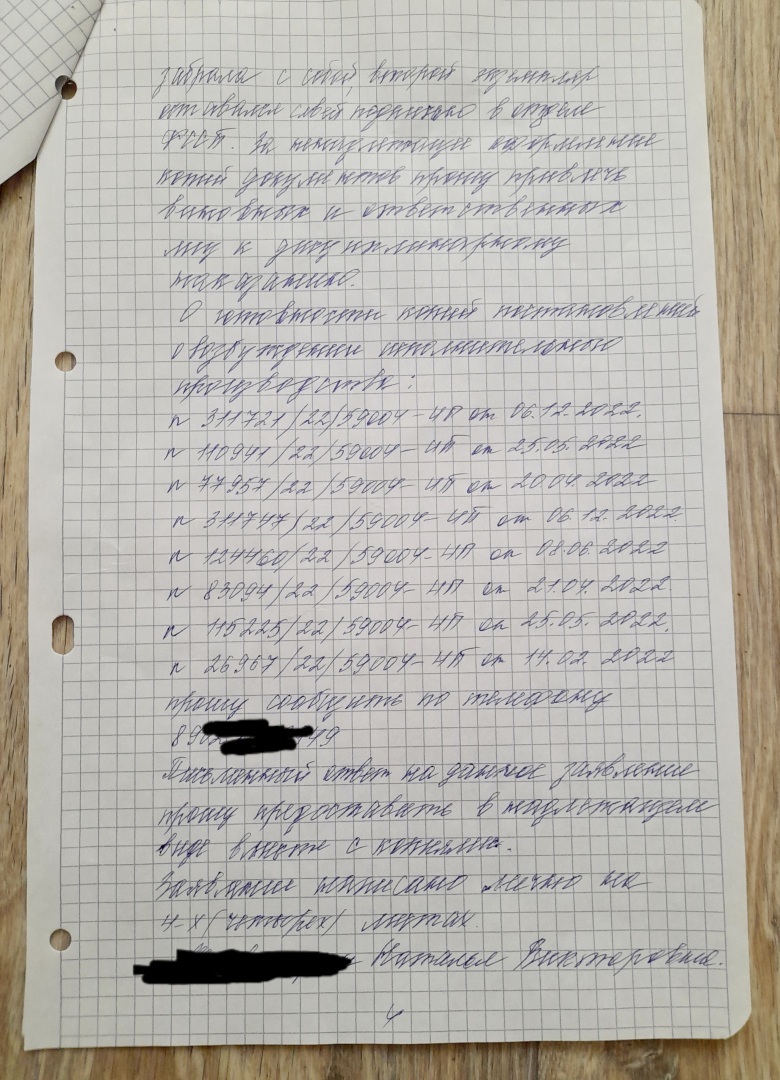 забрала с собой, второй экземпляр
оставался в отделе
ФССП. За ненадлежащее оформление
копий документов прошу привлечь
виновных и ответственных
лиц к дисциплинарному
наказанию.
О готовности копий постановлений
о возбуждении исполнительного
производства:
n 311721/22/59004-ИП от 06.12.2022.
n 110941/22/59004-ИП от 25.05.2022
n 77957/22/59004-ИП от 20.04.2022
n 311747/22/59004-ИП от 06.12.2022.
n 124460/22/59004-ИП от 08.06.2022
n 83094/22/59004-ИП от 21.04.2022
n 115225/22/59004-ИП от 25.05.2022.
n 26967/22/59004-ИП от 14.02.2022
прошу сообщить по телефону
Письменный ответ на данное заявление
прошу предоставить в надлежащем
виде вместе с копиями.
Заявление написано лично на
4-х (четырёх) листах.
Наталья Викторовна.
4